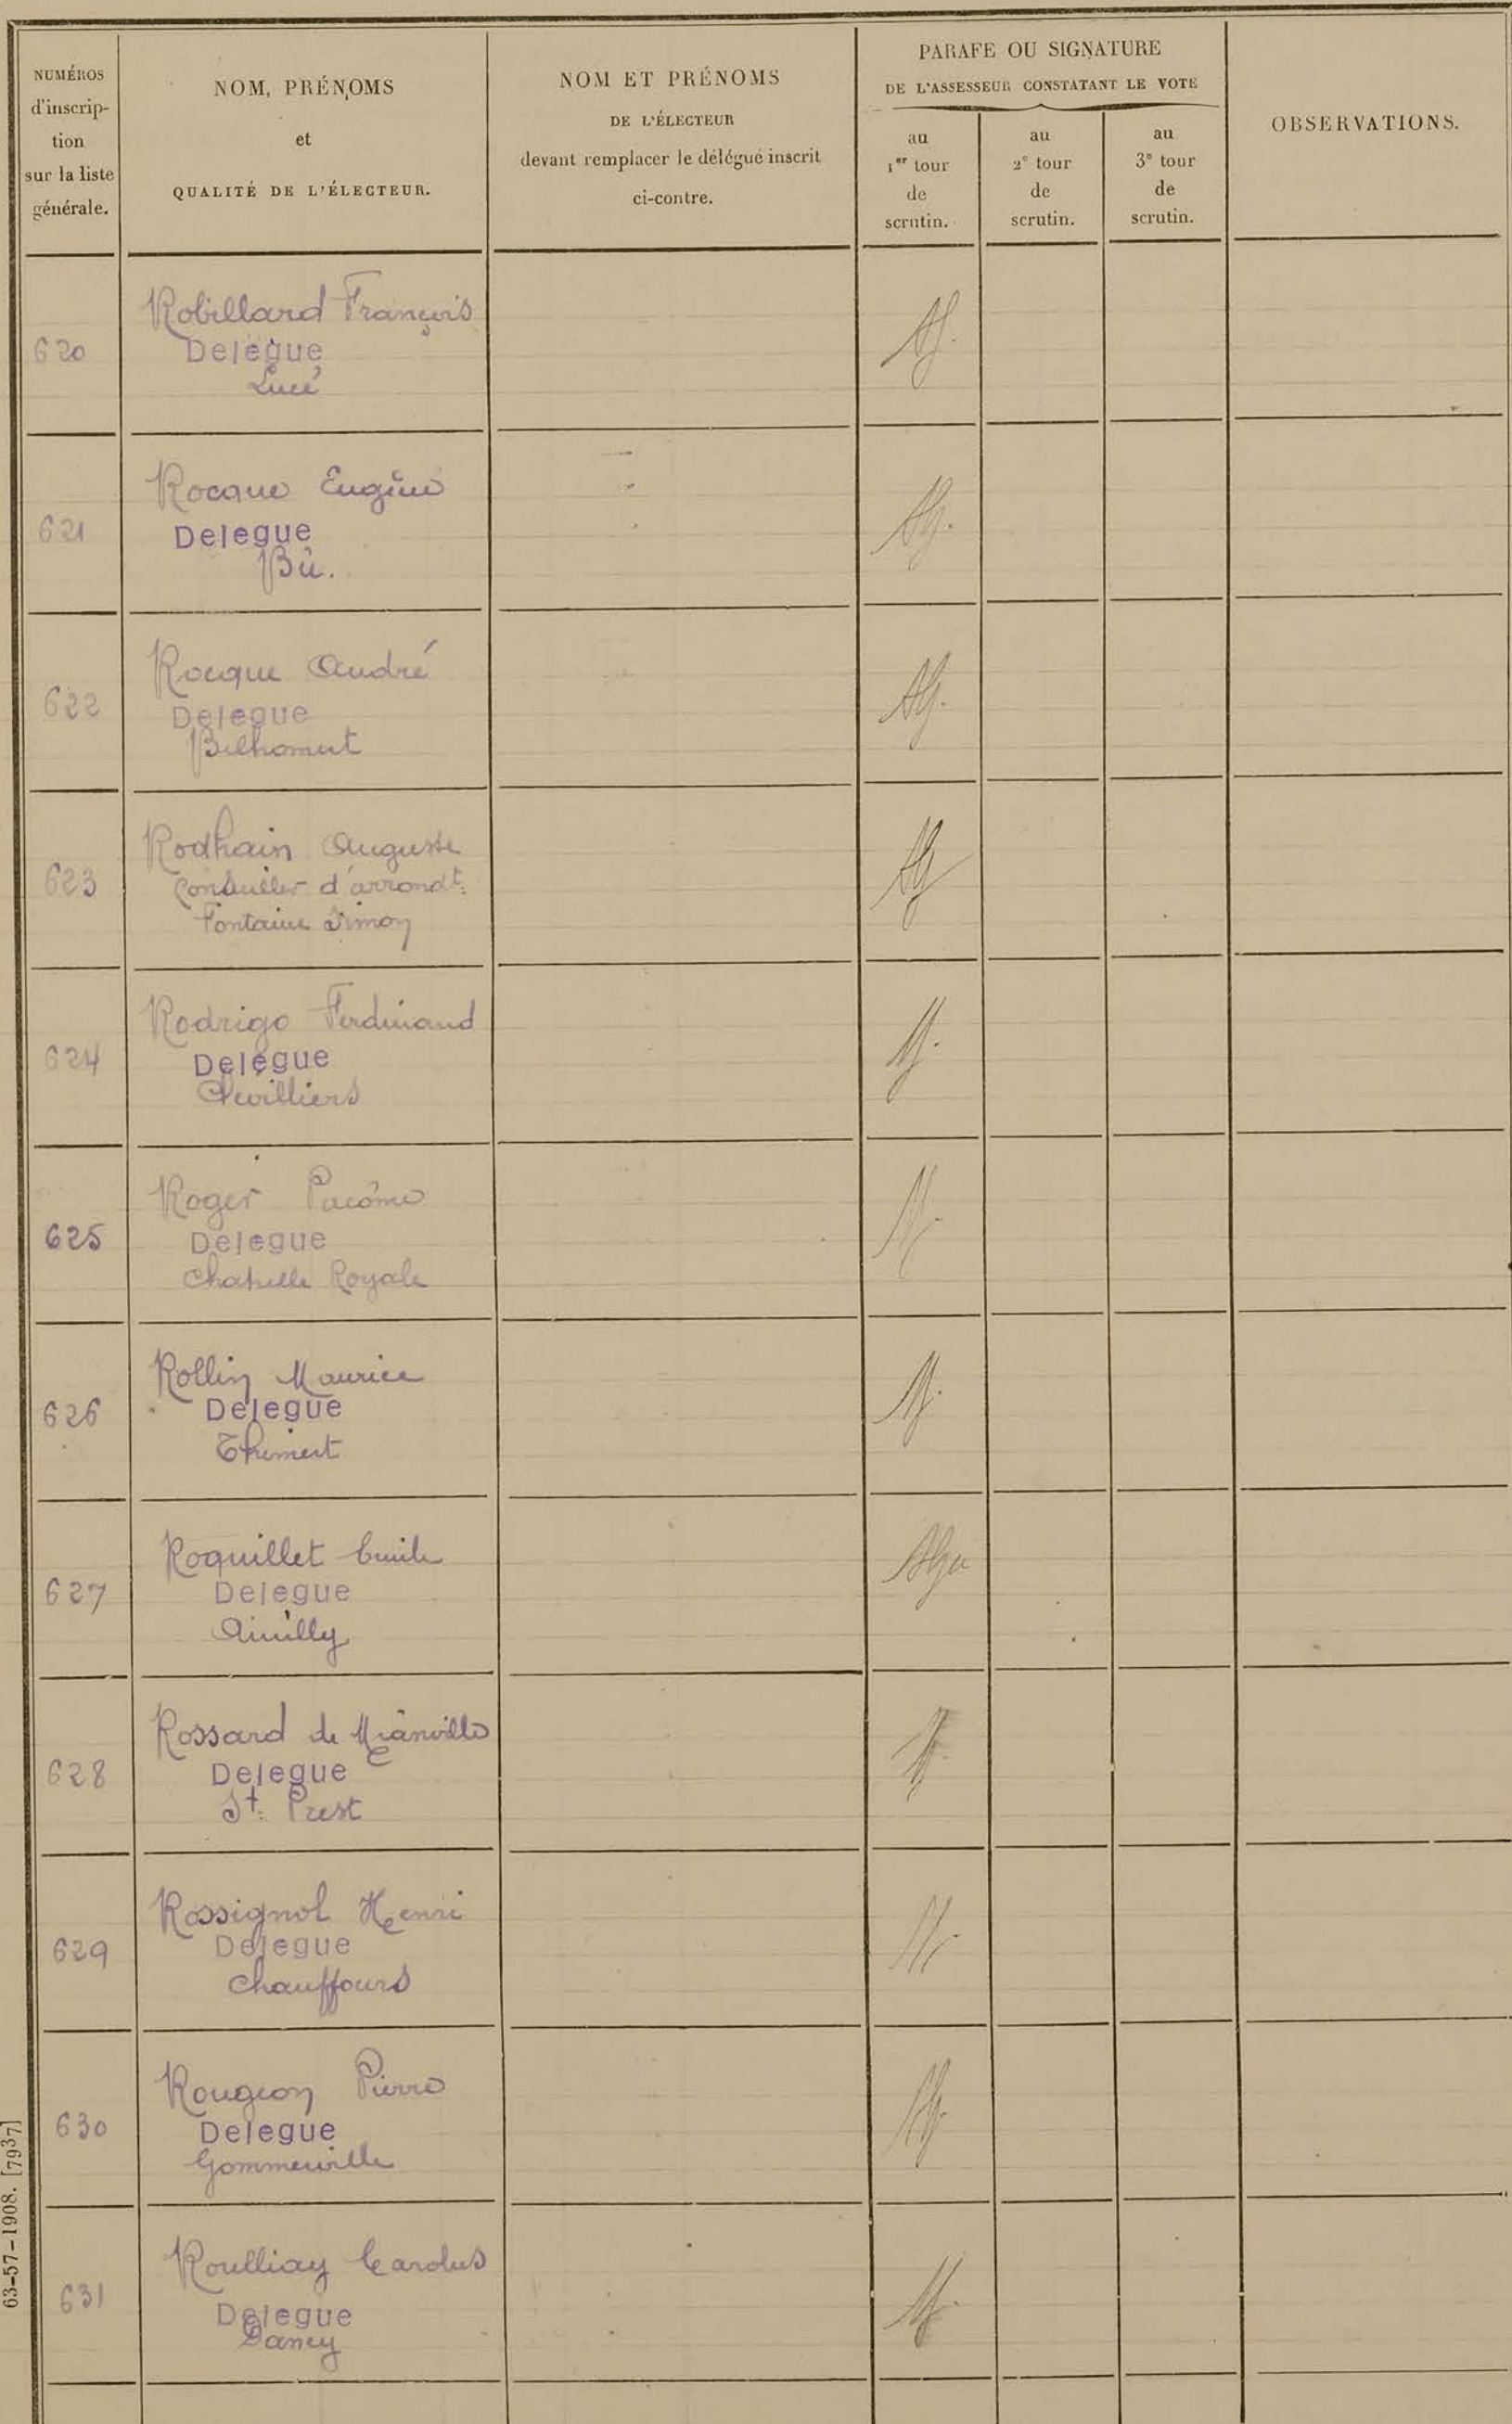 NUMÉROS
d'inscrip-
tion
sur la liste
générale.
NOM, PRÉNOMS
et
QUALITÉ DE L'ÉLECTEUR.
NOM ET PRÉNOMS
DE L'ÉLECTEUR
devant remplacer le délégué inscrit
ci-contre.
PARAFE OU SIGNATURE
DE L'ASSESSEUR CONSTATANT LE VOTE
au
1er tour
de
scrutin.
au
2e tour
de
scrutin.
au
3e tour
de
scrutin.
OBSERVATIONS.
Robillard François
620
Delegue
Lucé
Rocque Eugène
621
Delegue
Bû.
Rocque André
622
Delegue
Belhomert
Rodhain Auguste
623
Conseiller d'arrondt.
Fontaine Simon
Rodrigo Ferdinand
624
Delegue
Chevilliers
Roger Pacôme
625
Delegue
Chapelle Royale
Rollin Maurice
626
Delegue
Thimert
Roquillet Emile
627
Delegue
Amilly
Rossard de Mianville
628
Delegue
St. Prest
Rossignol Henri
629
Delegue
Chauffours
Rougeon Pierre
630
Delegue
Gommerville
Roulliay Carolus
631
Delegue
Dancy
63-57-1908. [7937]